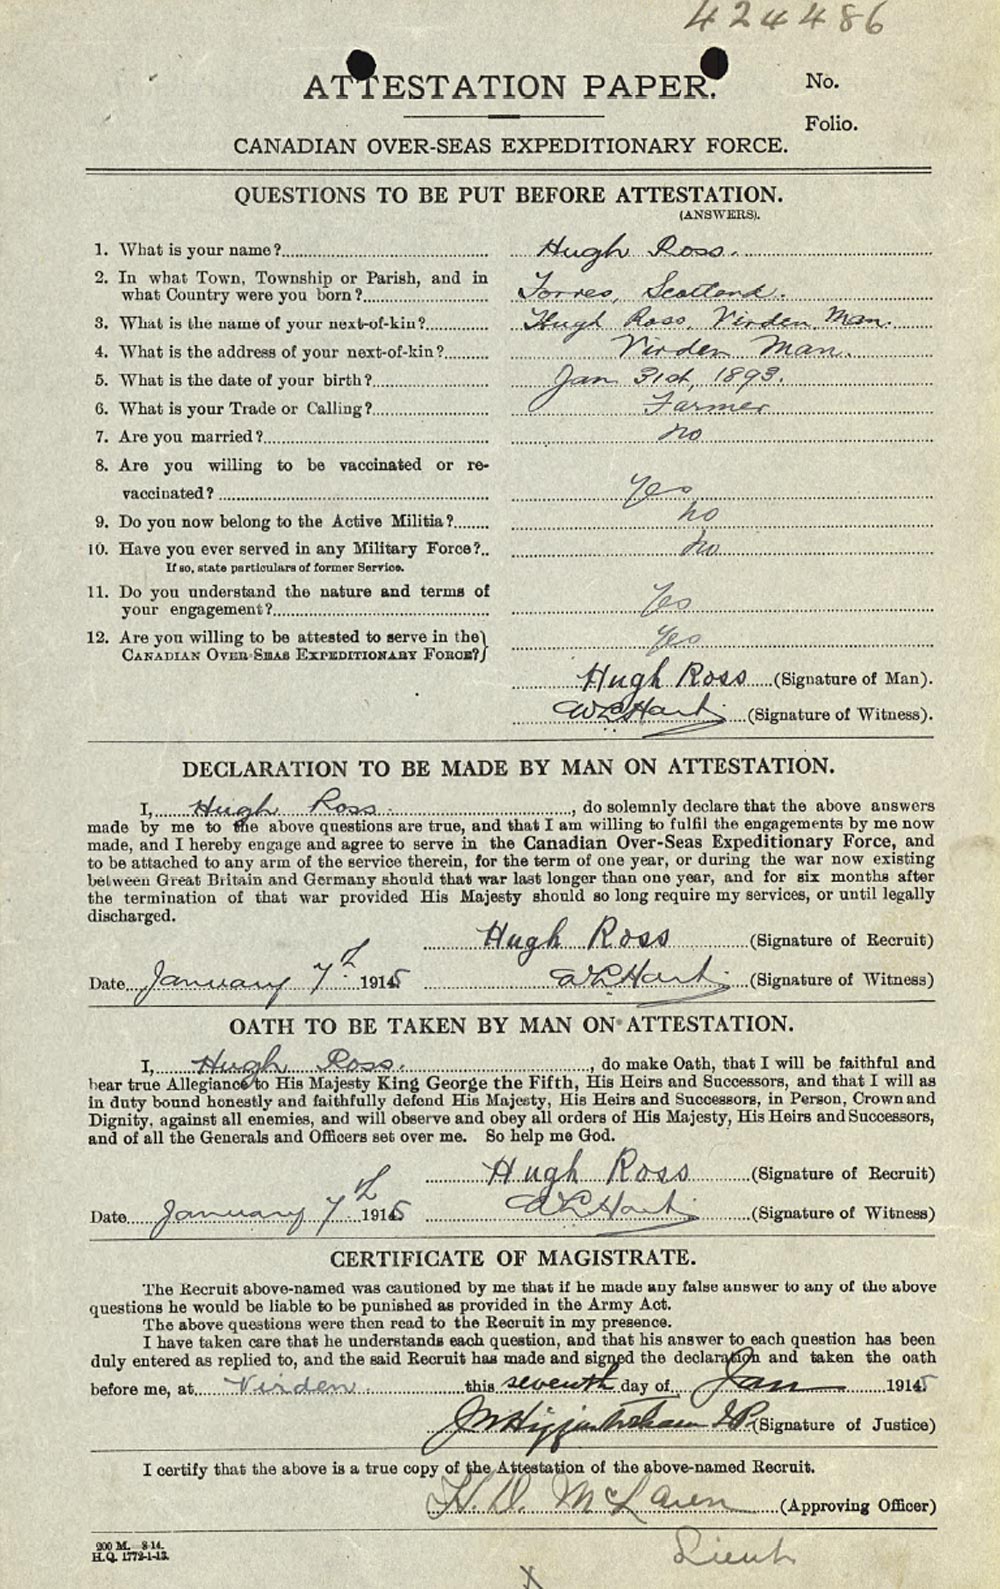 424486
ATTESTATION PAPER.
No.
Folio.
CANADIAN OVER-SEAS EXPEDITIONARY FORCE.
QUESTIONS TO BE PUT BEFORE ATTESTATION.
(ANSWERS).
1. What is your name? Hugh Ross.
2. In what Town, Township or Parish, and in
what Country were you born? Forres, Scotland.
3. What is the name of your next-of-kin? Hugh Ross, Virden, Man.
4. What is the address of your next-of-kin? Virden Man.
5. What is the date of your birth? Jan 31st, 1893.
6. What is your Trade or Calling? Farmer
7. Are you married? no
8. Are you willing to be vaccinated or re-
vaccinated? Yes
9. Do you now belong to the Active Militia? no
10. Have you ever served in any Military Force?.. no
If so, state particulars of former Service.
11. Do you understand the nature and terms of
your engagement? Yes
12. Are you willing to be attested to serve in the } Yes
CANADIAN OVER-SEAS EXPEDITIONARY FORCE?
Hugh Ross (Signature of Man).
W L Hart (Signature of Witness).
DECLARATION TO BE MADE BY MAN ON ATTESTATION.
I, Hugh Ross, do solemnly declare that the above answers
made by me to the above questions are true, and that I am willing to fulfil the engagements by me now
made, and I hereby engage and agree to serve in the Canadian Over-Seas Expeditionary Force, and
to be attached to any arm of the service therein, for the term of one year, or during the war now existing
between Great Britain and Germany should that war last longer than one year, and for six months after
the termination of that war provided His Majesty should so long require my services, or until legally
discharged.
Hugh Ross (Signature of Recruit)
Date January 7th 1915 (Signature of Witness)
OATH TO BE TAKEN BY MAN ON ATTESTATION.
I, Hugh Ross., do make Oath, that I will be faithful and
bear true Allegiance to His Majesty King George the Fifth, His Heirs and Successors, and that I will as
in duty bound honestly and faithfully defend His Majesty, His Heirs and Successors, in Person, Crown and
Dignity, against all enemies, and will observe and obey all orders of His Majesty, His Heirs and Successors,
and of all the Generals and Officers set over me. So help me God.
Hugh Ross (Signature of Recruit)
Date January 7th 1915 (Signature of Witness)
CERTIFICATE OF MAGISTRATE.
The Recruit above-named was cautioned by me that if he made any false answer to any of the above
questions he would be liable to be punished as provided in the Army Act.
The above questions were then read to the Recruit in my presence.
I have taken care that he understands each question, and that his answer to each question has been
duly entered as replied to, and the said Recruit has made and signed the declaration and taken the oath
before me, at Virden. this seventh day of Jan 1915
J.P. (Signature of Justice)
I certify that the above is a true copy of the Attestation of the above-named Recruit.
H. D. McLaren (Approving Officer)
Lieut
200 M. 8-14.
H.Q. 1772-1-13.